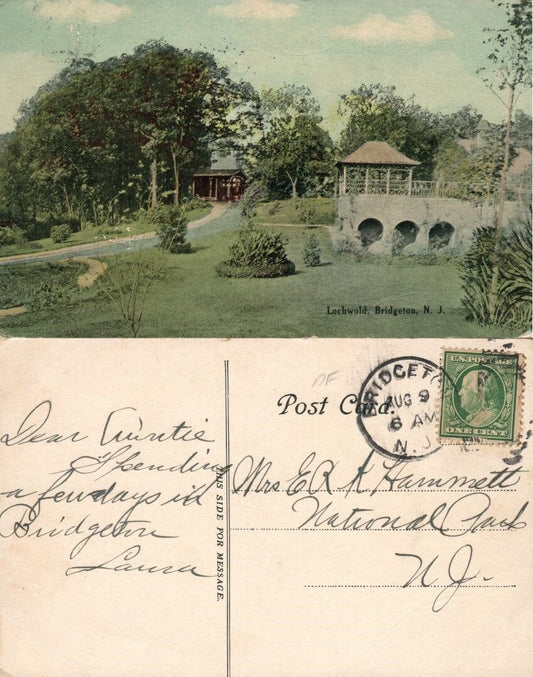 Lochwold, Bridgeton, N. J.
DF
Post Card.
BRIDGETO
AUG 9
6 AM
N. J.
U.S. POSTAGE
ONE CENT
Dear Auntie
Spending
a few days in
Bridgeton
Laura
THIS SIDE FOR MESSAGE.
Mrs E R K Hammett
National Park
N J.